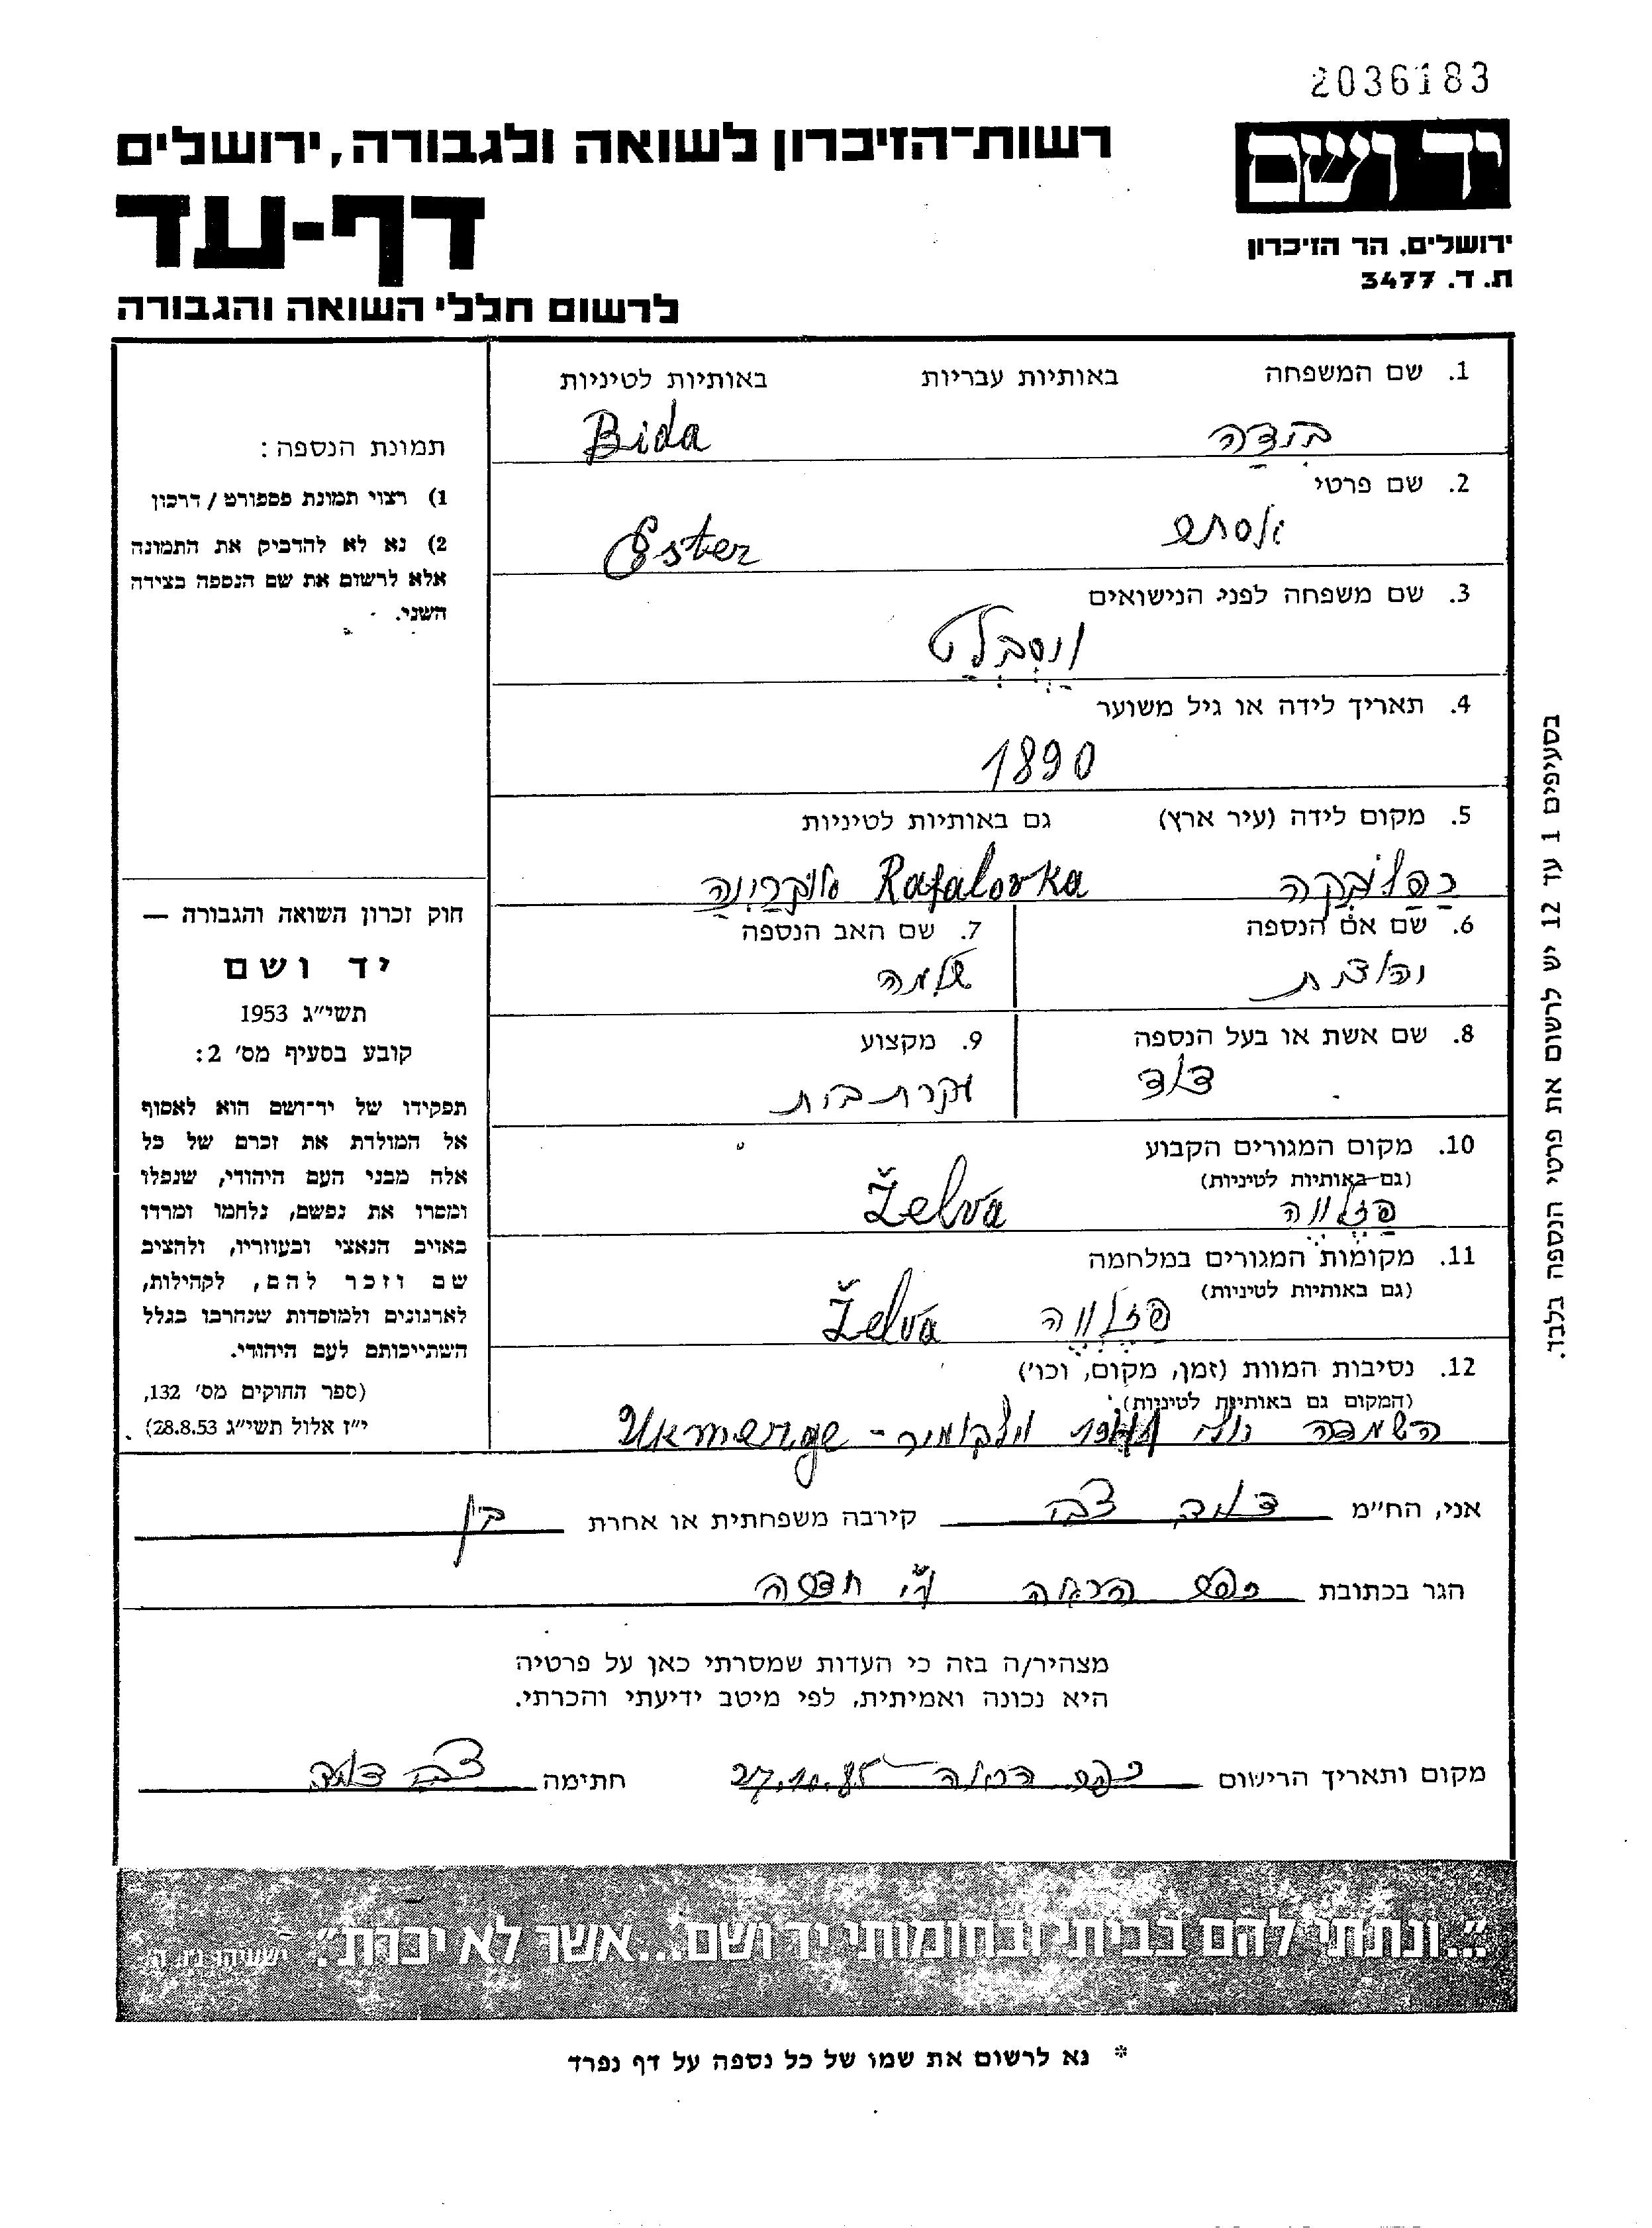 2036183
יד ושם
ירושלים, הר הזיכרון
ת. ד. 3477
רשות־הזיכרון לשואה ולגבורה, ירושלים
דף-עד
לרשום חללי השואה והגבורה
1. שם המשפחה באותיות עבריות באותיות לטיניות
בִידַה Bida
2. שם פרטי
אסתר Ester
3. שם משפחה לפני הנישואים
4. תאריך לידה או גיל משוער
1890
5. מקום לידה (עיר ארץ) גם באותיות לטיניות
Rafalovka
6. שם אם הנספה 7. שם האב הנספה
שלמה
8. שם אשת או בעל הנספה 9. מקצוע
דוד עקרת בית
10. מקום המגורים הקבוע
(גם באותיות לטיניות)
Želva
11. מקומות המגורים במלחמה
(גם באותיות לטיניות)
Želva
12. נסיבות המוות (זמן, מקום, וכו')
(המקום גם באותיות לטיניות)
השמדה 1941 וילקומיר - Ukmerge
אני, הח״מ קירבה משפחתית או אחרת בן
הגר בכתובת כפר
מצהיר/ה בזה כי העדות שמסרתי כאן על פרטיה
היא נכונה ואמיתית, לפי מיטב ידיעתי והכרתי.
מקום ותאריך הרישום כפר 27.10.85 חתימה
תמונת הנספה:
1) רצוי תמונת פספורט / דרכון
2) נא לא להדביק את התמונה
אלא לרשום את שם הנספה בצידה
השני.
חוק זכרון השואה והגבורה —
יד ושם
תשי״ג 1953
קובע בסעיף מס' 2:
תפקידו של יד־ושם הוא לאסוף
אל המולדת את זכרם של כל
אלה מבני העם היהודי, שנפלו
ומסרו את נפשם, נלחמו ומרדו
באויב הנאצי ובעוזריו, ולהציב
שם וזכר להם, לקהילות,
לארגונים ולמוסדות שנחרבו בגלל
השתייכותם לעם היהודי.
(ספר החוקים מס' 132,
י״ז אלול תשי״ג 28.8.53)
בסעיפים 1 עד 12 יש לרשום את פרטי הנספה בלבד.
"...ונתתי להם בביתי ובחומותי יד ושם...אשר לא יכרת". ישעיהו נו, ה'
* נא לרשום את שמו של כל נספה על דף נפרד